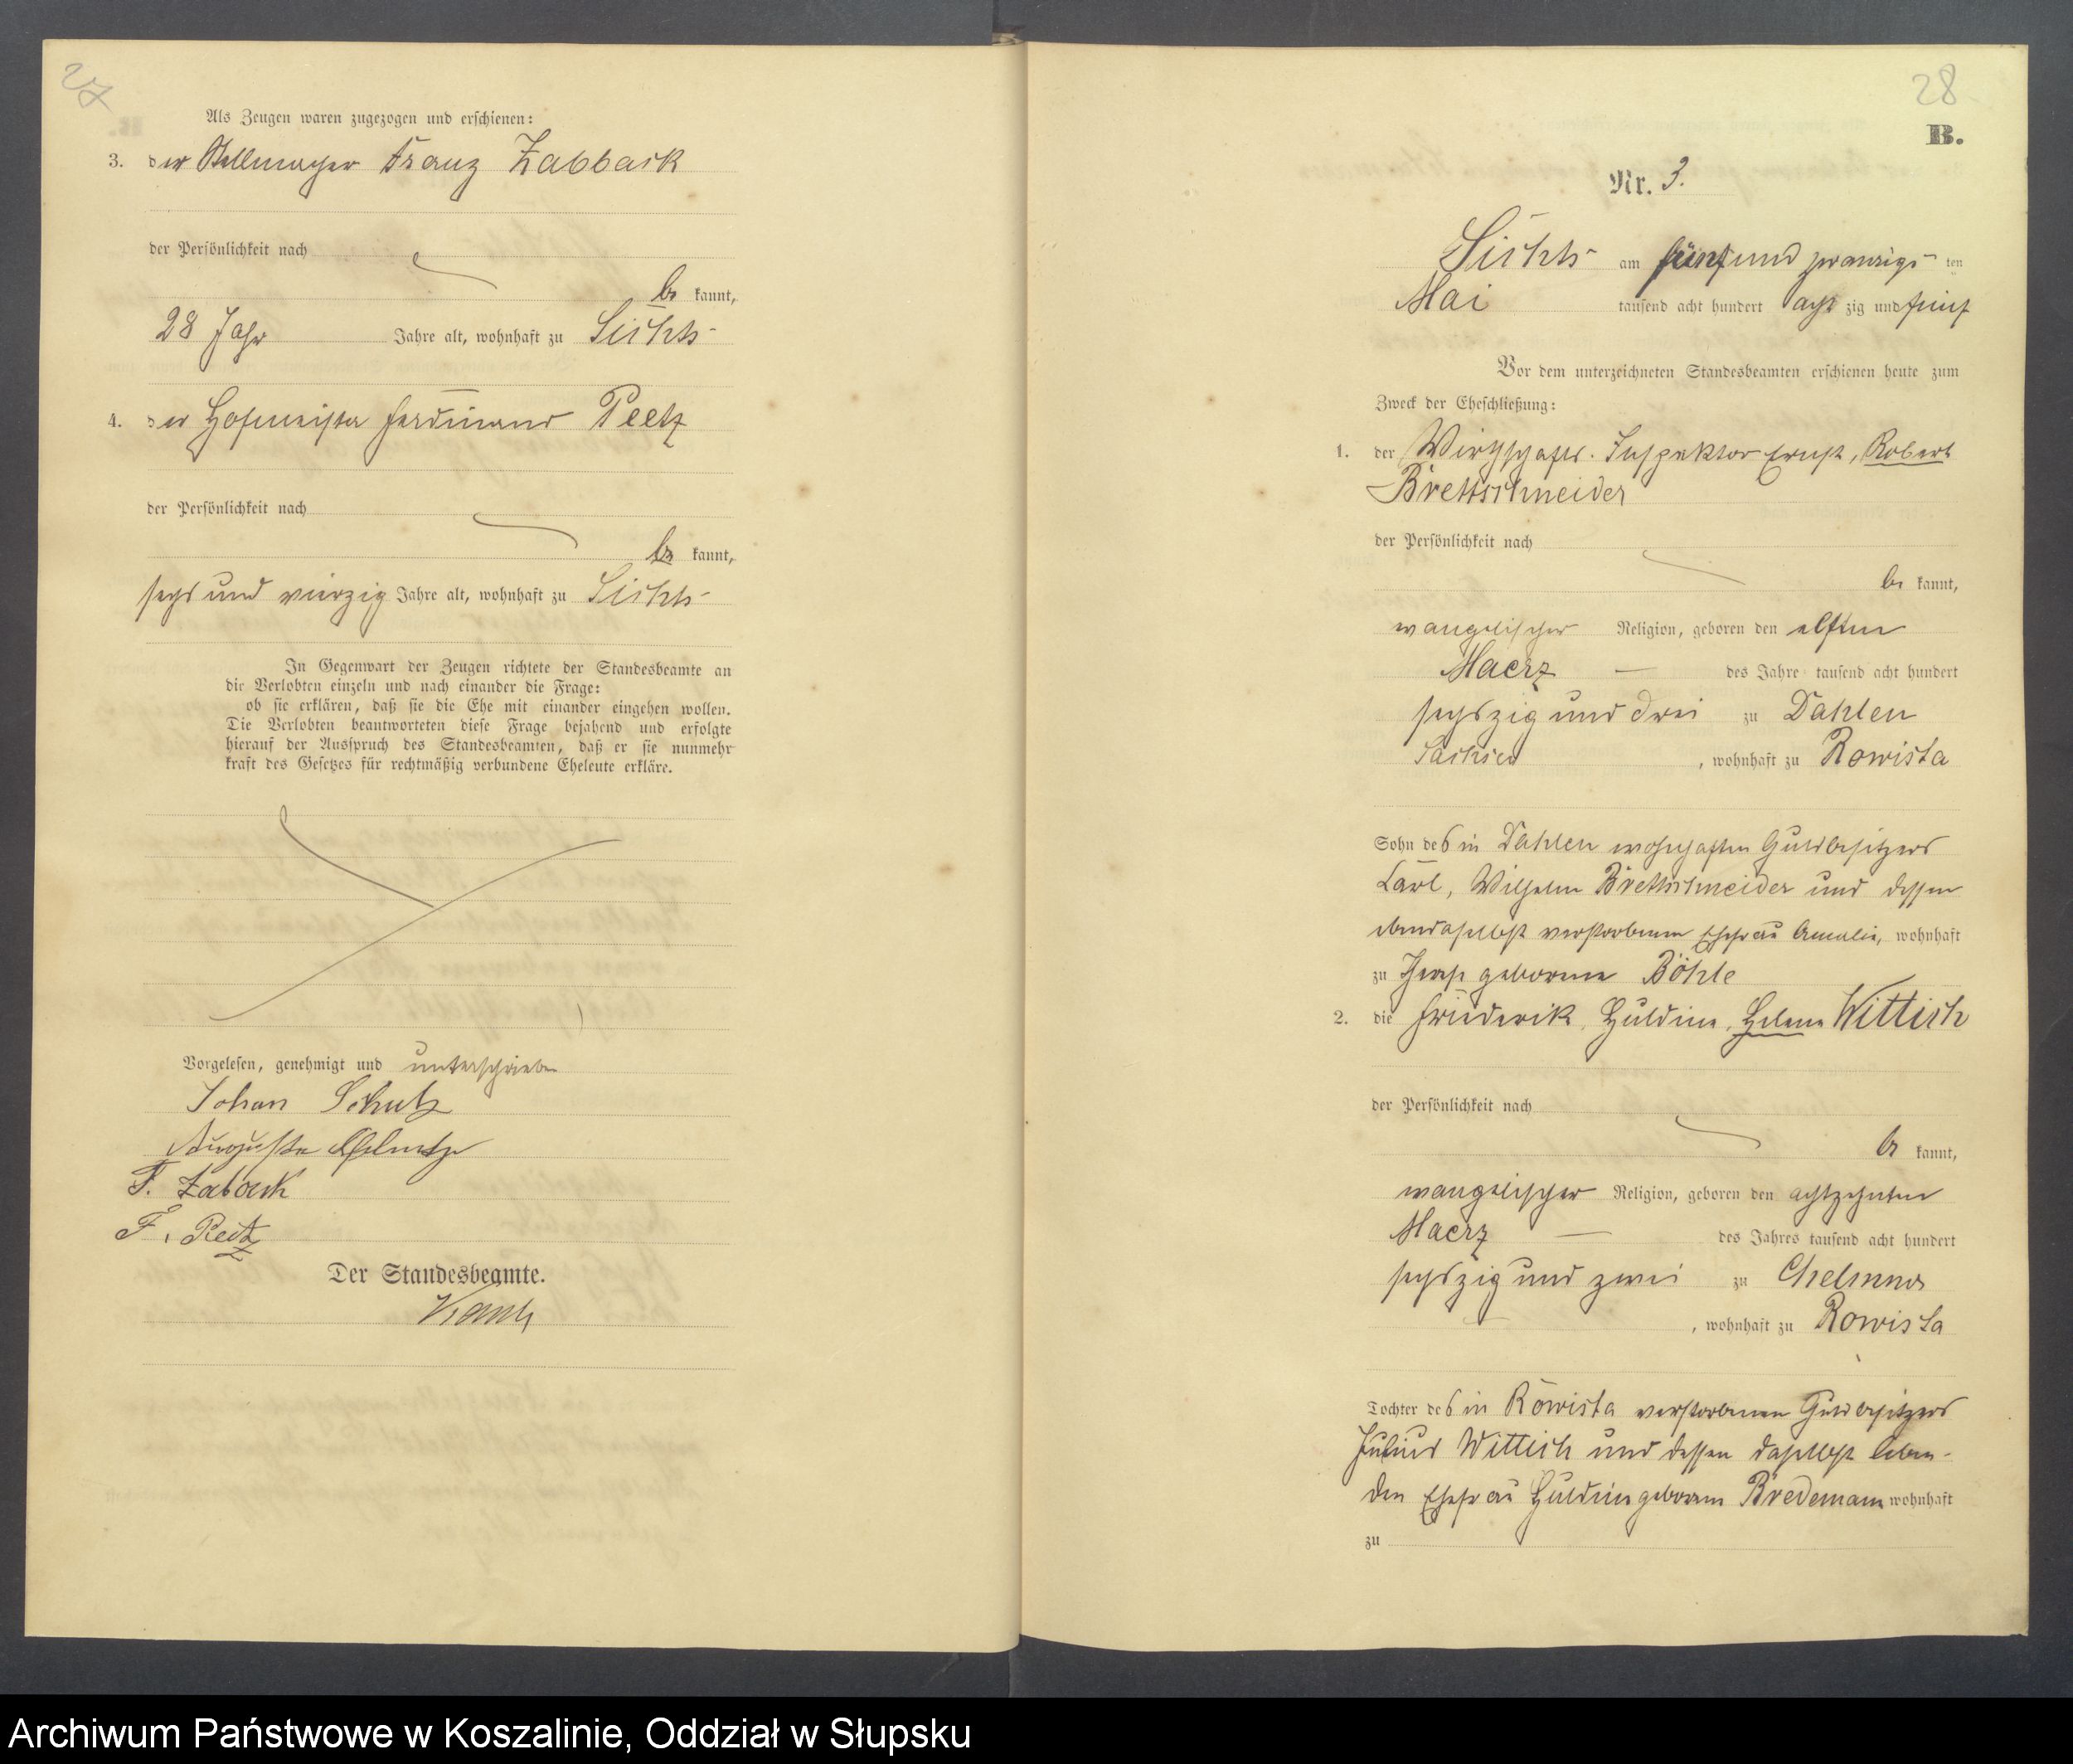 27
Als Zeugen waren zugezogen und erschienen:
3. der Stellmacher Franz Zabback
der Persönlichkeit nach
be kannt,
28 Jahr Jahre alt, wohnhaft zu
4. der Hofmeister Ferdinand Peetz
der Persönlichkeit nach
be kannt,
sechs und vierzig Jahre alt, wohnhaft zu
In Gegenwart der Zeugen richtete der Standesbeamte an
die Verlobten einzeln und nach einander die Frage:
ob sie erklären, daß sie die Ehe mit einander eingehen wollen.
Die Verlobten beantworteten diese Frage bejahend und erfolgte
hierauf der Ausspruch des Standesbeamten, daß er sie nunmehr
kraft des Gesetzes für rechtmäßig verbundene Eheleute erkläre.
Vorgelesen, genehmigt und unterschrieben
Johan Schulz
Auguste
F. Zaback
F. Peetz
Der Standesbeamte.
28
B.
Nr. 3.
am fünf und zwanzigs ten
Mai tausend acht hundert acht zig und fünf
Vor dem unterzeichneten Standesbeamten erschienen heute zum
Zweck der Eheschließung:
1. der Wirthschafts-Inspektor Ernst, Robert
Brettschneider
der Persönlichkeit nach
be kannt,
evangelischer Religion, geboren den elften
Maerz des Jahre tausend acht hundert
sechszig und drei zu Dahlen
Sachsen, wohnhaft zu Rowista
Sohn des in Dahlen wohnhaften Gutsbesitzers
Carl, Wilhelm Brettschneider und dessen
ebendaselbst verstorbenen Ehefrau Amalie, wohnhaft
zu geborene Böhle
2. die Friederik, Huldine, Helene Wittich
der Persönlichkeit nach
be kannt,
evangelischer Religion, geboren den achtzehnten
Maerz des Jahres tausend acht hundert
sechszig und zwei zu Chelmno
, wohnhaft zu Rowista
Tochter des in Rowista verstorbenen Gutsbesitzers
Julius Wittich und dessen daselbst leben-
den Ehefrau Huldine geborene Bredemann wohnhaft
zu
Archiwum Państwowe w Koszalinie, Oddział w Słupsku